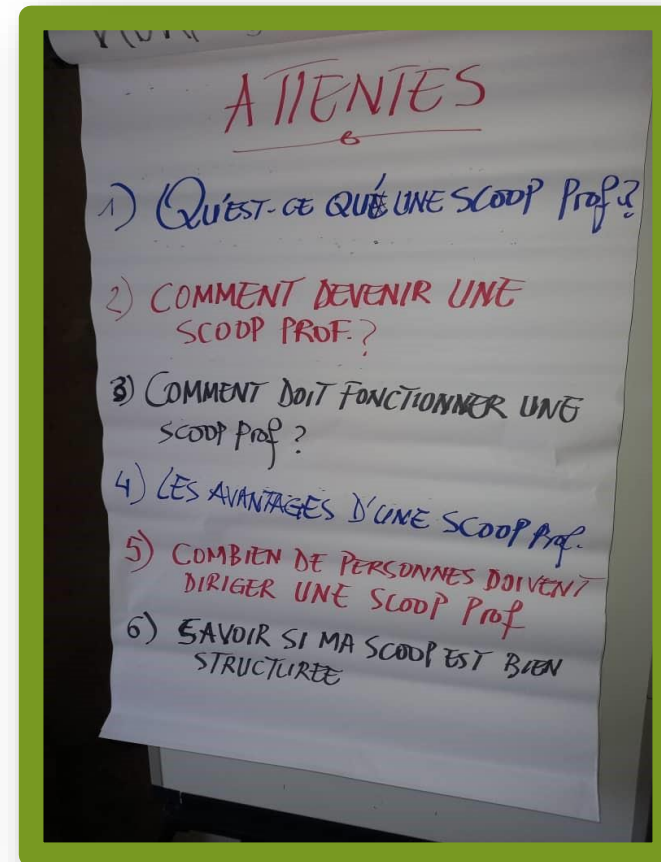 ATTENTES
1) QU'EST-CE QU'UNE SCOOP Prof?
2) COMMENT DEVENIR UNE
SCOOP PROF.?
3) COMMENT DOIT FONCTIONNER UNE
SCOOP Prof ?
4) LES AVANTAGES D'UNE SCOOP Prof.
5) COMBIEN DE PERSONNES DOIVENT
DIRIGER UNE SCOOP Prof
6) SAVOIR SI MA SCOOP EST BIEN
STRUCTUREE